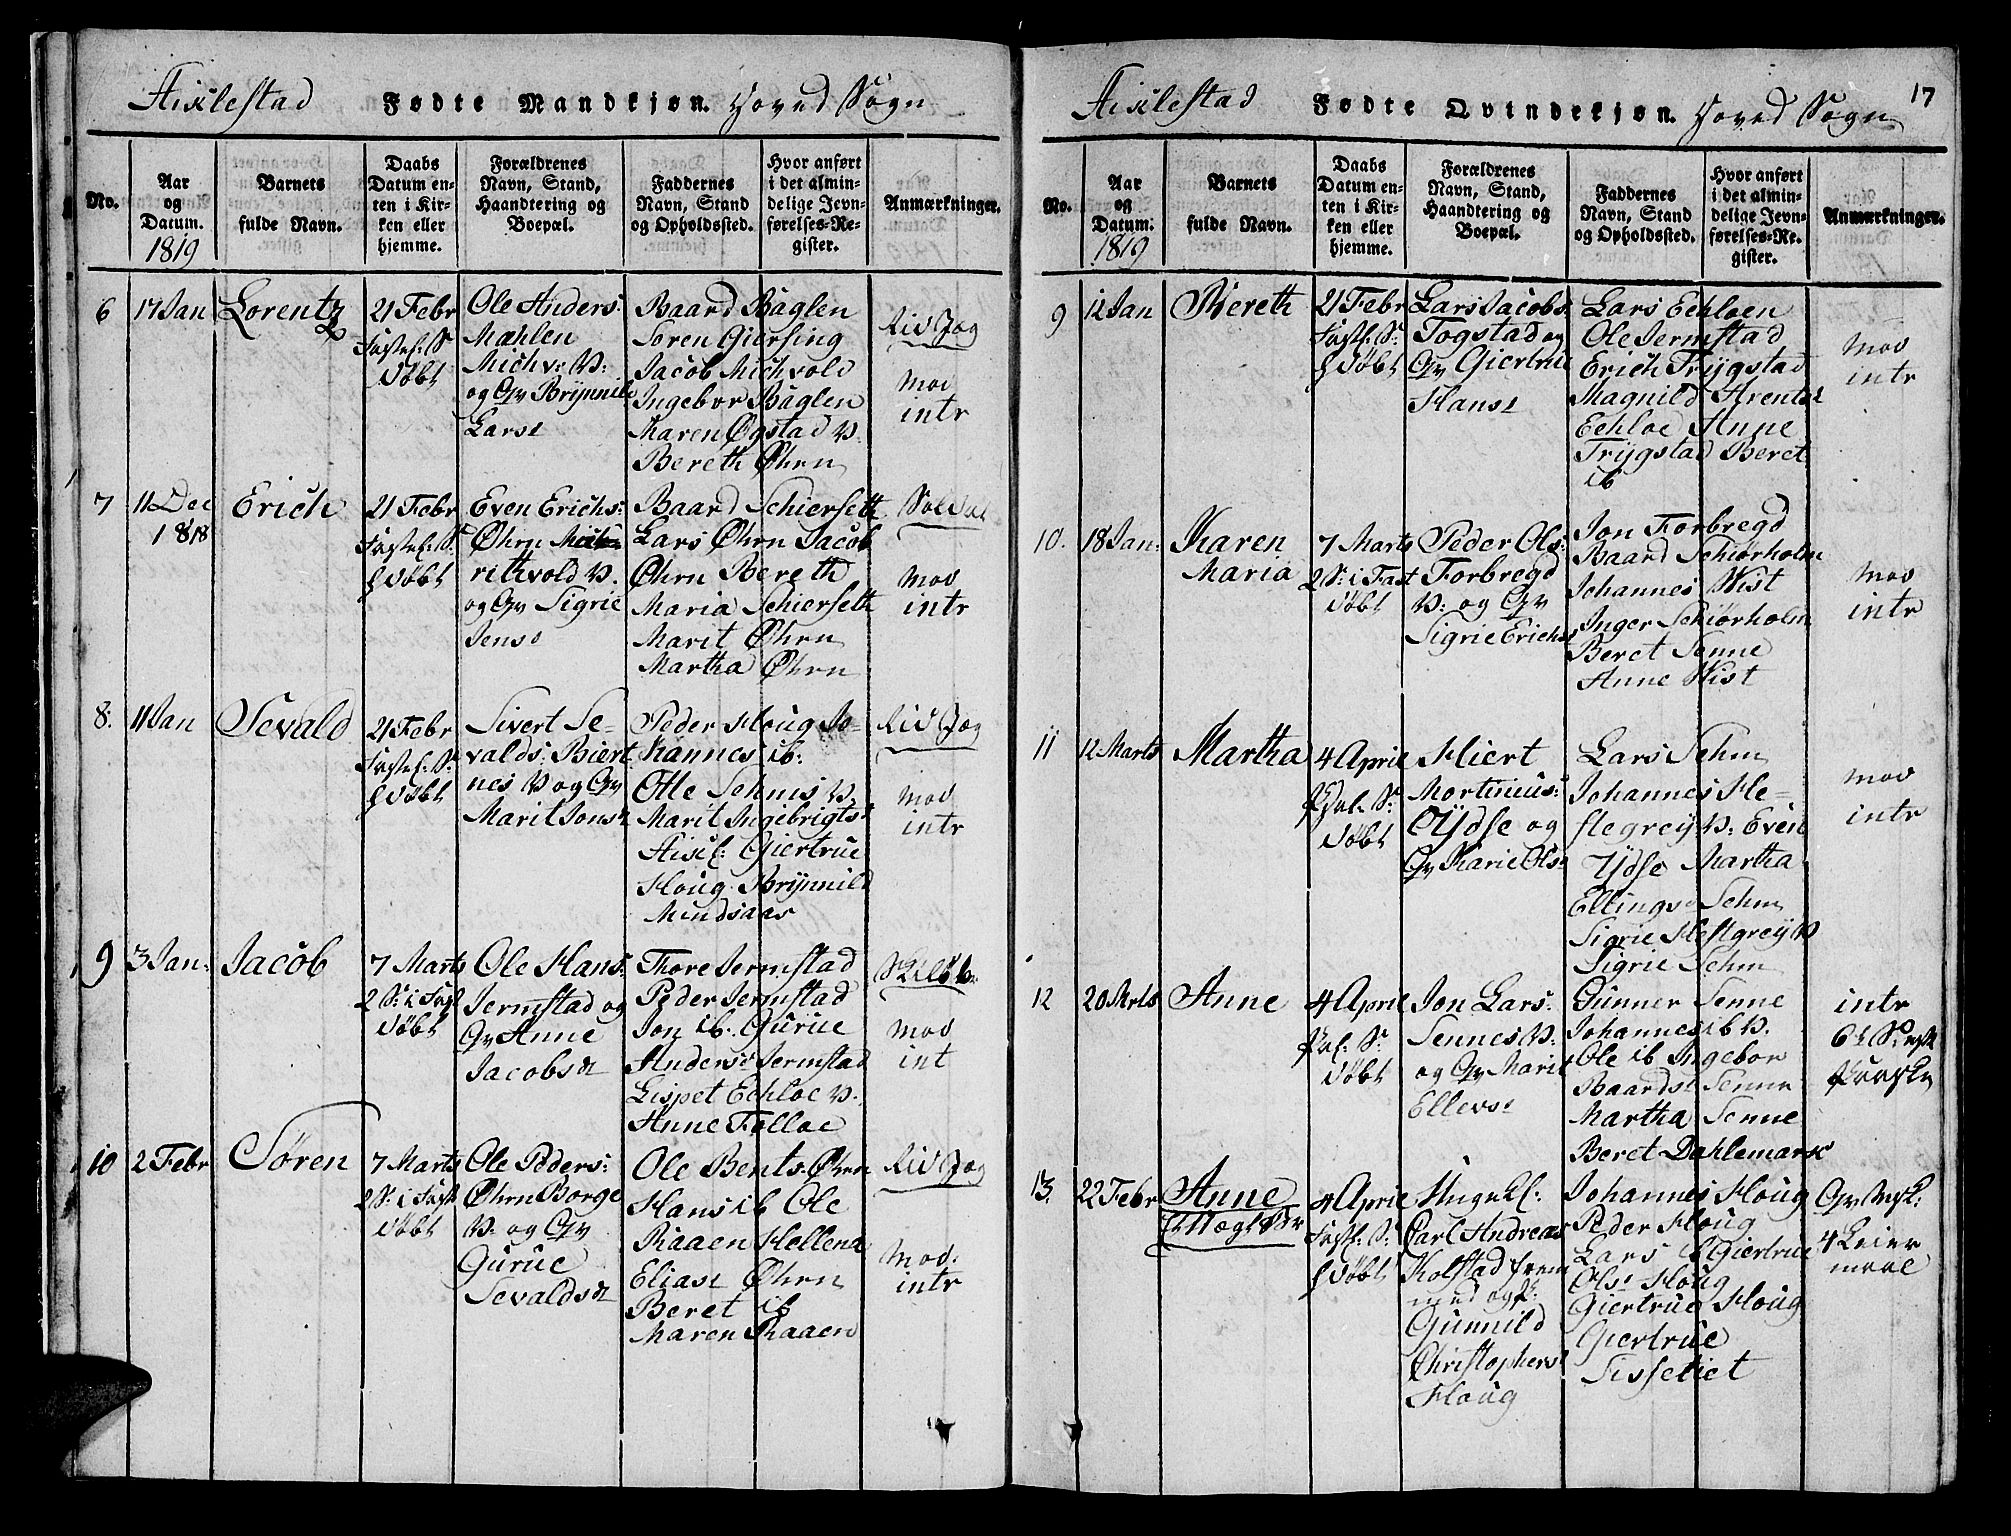 Aixlestad Fødte Mandkjøn. Hoved Sogn
No.
Aar og Datum. 1819
Barnets fulde Navn.
Daabs Datum enten i Kirken eller hjemme.
Forældrenes Navn, Stand, Haandtering og Boepæl.
Faddernes Navn, Stand og Opholdssted.
Hvor anført i det almindelige Jevnførelses-Register.
Anmærkninger.
6
17 Jan
Lorentz
21 Febr
Fastel: S:
døbt
Ole Anders:
Mæhlen
Michv: V:
og Qv Brynnild
Larsd
Baard Baglen
Søren Giersing
Jacob Michvold
Ingebor Baglen
Maren Øgstad V.
Bereth Øhrn
Rid Jæg
mod
intr
7
11 Dec
1818
Erich
21 Febr
Fastel: S:
døbt
Even Erichs:
Øhrn
rithvold V.
og Qv Sigrie
Jensd
Baard Schierseth
Lars Øhrn Jacob
Øhrn Bereth
Maria Schierseth
Marit Øhrn
Martha Øhrn
Soldat
mod
intr
8.
11 Jan
Sevald
21 Febr
Fastel: S:
døbt
Sivert Se-
valds: Biert
nes V og Qv
Marit Jonsd
Peder Houg Jo-
hannes ib:
Otte Sehms V.
Marit Ingebrigtsd
Aixl: Giertrue
Houg Brynnild
Mindsaas
Rid Jæg
mod
intr
9
3 Jan:
Jacob
7 Marts
2 S: i Fast
døbt
Ole Hans:
Jermstad og
Qv Anne
Jacobsd
Thore Jermstad
Peder Jermstad
Jon ib. Gurue
Andersd Jermstad
Lispet Echloe V.
Anne Falloe
mod
int
10
2 Febr
Søren
7 Marts
2 S: i Fast
døbt
Ole Peders:
Øhrn Borge
V: og Qv
Gurue
Sevaldsd
Ole Bents. Øhrn
Hans ib Ole
Raaen Hellena
Eliasd Øhrn
Beret ib
Maren Raaen
Rid Jæg
mod.
intr
17
Aixlestad Fødte Qvindekjøn. Hoved Sogn
No.
Aar og Datum. 1819
Barnets fulde Navn.
Daabs Datum enten i Kirken eller hjemme.
Forældrenes Navn, Stand, Haandtering og Boepæl.
Faddernes Navn, Stand og Opholdssted.
Hvor anført i det almindelige Jevnførelses-Register.
Anmærkninger.
9
12 Jan
Bereth
21 Febr
Fastl: S:
døbt
Lars Jacobs
Togstad og
Qv Giertrue
Hansd
Lars Echloen
Ole Jermstad
Erich Trygstad
Magnild Arentsd
Echloe Anne
Trygstad Beret
ib
mod
intr
10.
18 Jan:
Karen
Maria
7 Marts
2 S: i Fast
døbt
Peder Ols:
Forbregd
V: og Qv
Sigrie Erichsd
Jon Forbregd
Baard Schiørholm
Johannes Wist
Inger Schiørholm
Beret Senne
Anne Wist
mod
intr
11
12 Marts
Martha
4 April
Pal: S:
døbt
Hiert
Mortinius:
Ydse og
Qv Marie Olsd
Lars Sehm
Johannes He-
stegrey V: Even
Ydse Martha
Ellingsd Sehm
Sigrie Hestgrey V
Sigrie Sehm
mod
intr
12
20 Mrts
Anne
4 April
Pal: S:
døbt
Jon Lars:
Sennes V:
og Qv Marit
Ellevsd
Gunner Senne
Johannes ib V.
Ole ib Ingebor
Baardsd Senne
Martha Senne
Beret Dahlemark
intr
Paaske
13.
22 Febr
Anne
4 April
Fastl: S:
døbt
Ungekl:
Carl Andreas
Kolstad frem
med og P:
Gunnild
Christophersd
Houg
Johannes Houg
Peder Houg
Lars ib Giertrue
Olsd Houg
Giertrue Houg
Giertrue
Tissetiet
4 Leier
maal